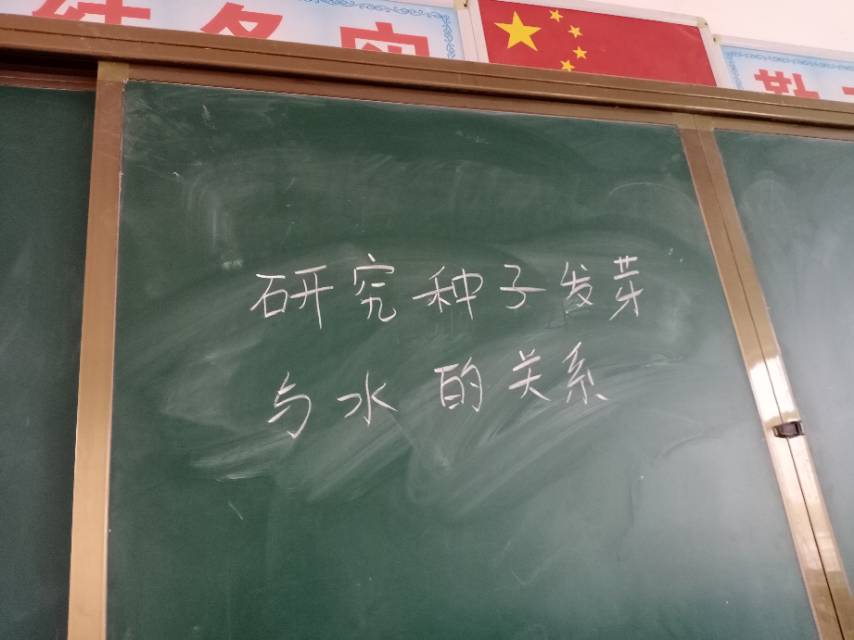 研究种子发芽
与水的关系